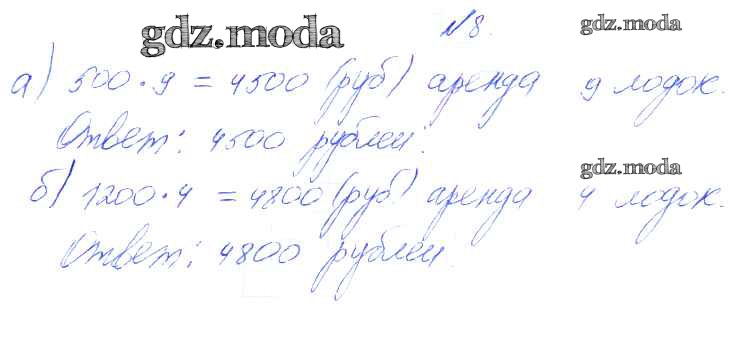 gdz.moda №8. gdz.moda
а) 500·9 = 4500 (руб) аренда 9 лодок.
Ответ: 4500 рублей.
gdz.moda
б) 1200·4 = 4800 (руб) аренда 4 лодок.
Ответ: 4800 рублей.